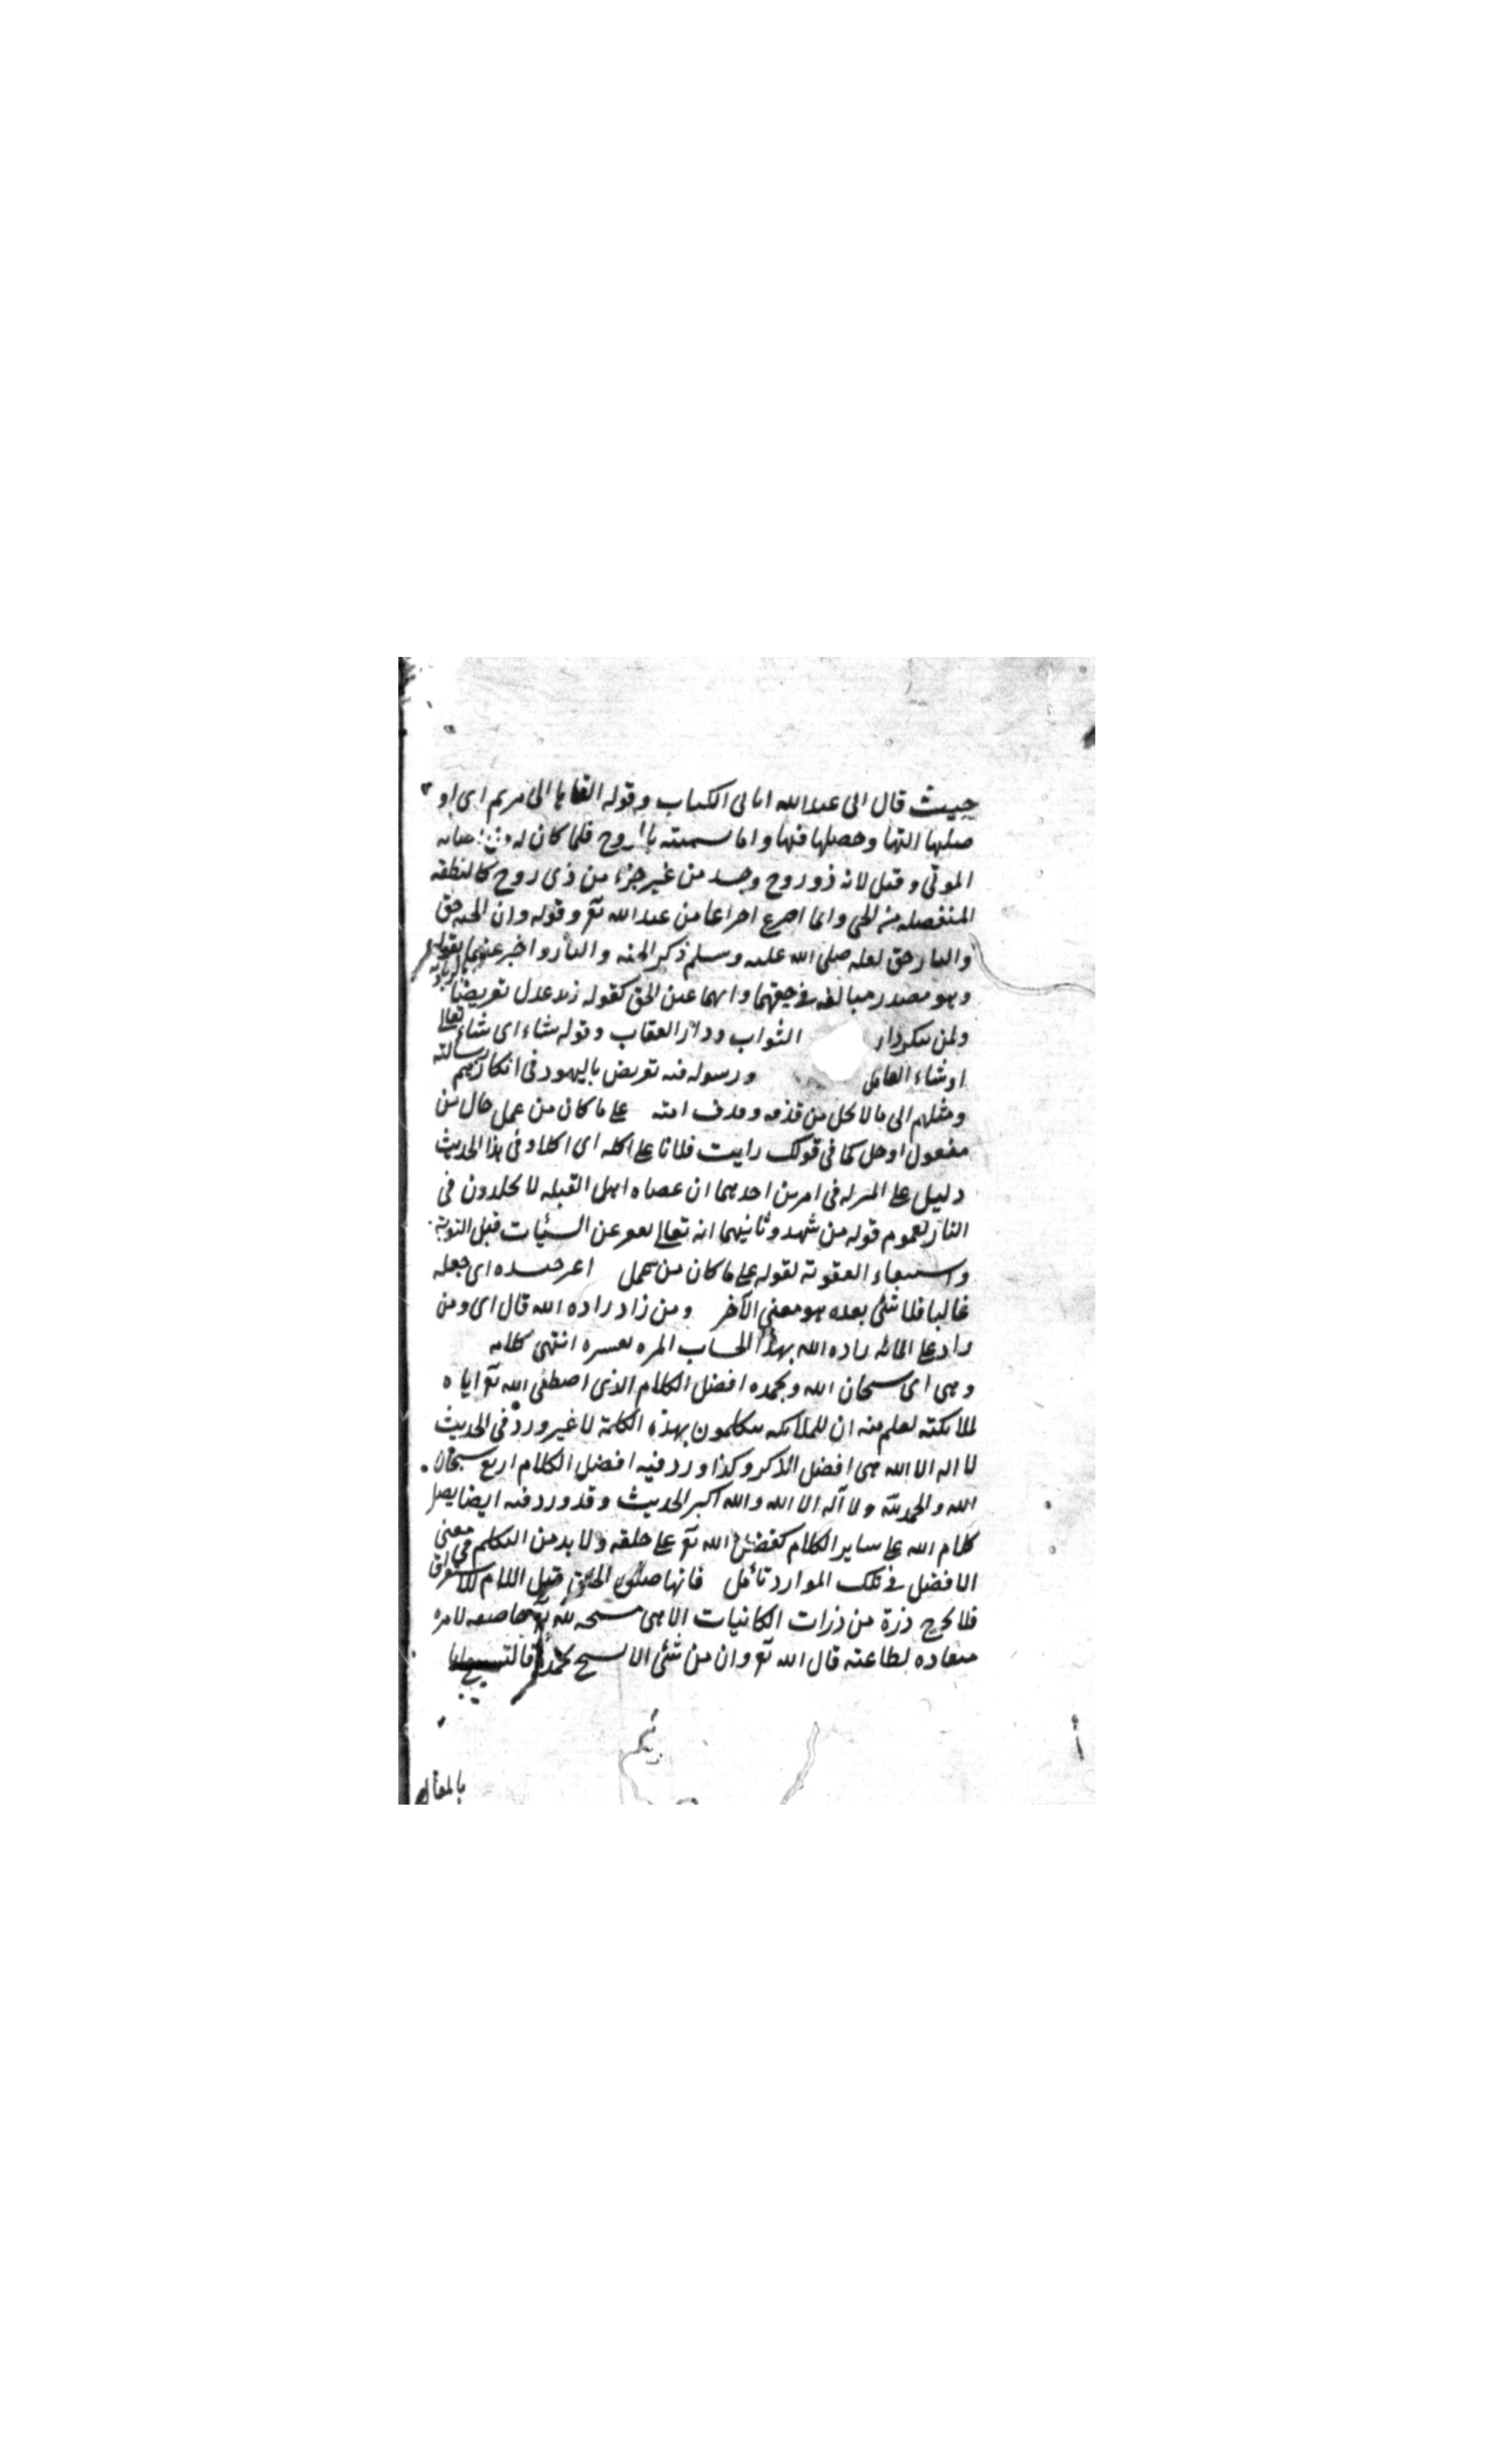 حيث قال انى عبد الله اتانى الكتاب وقوله القاها الى مريم اى او
صلها اليها وحصلها فيها واما سميته بالروح فلما كان له من احيائه
الموتى وقيل لانه ذو روح وجد من غير جزء من ذى روح كالنطفه
المنفصله من الحى وانما اخترع اختراعا من عند الله تع وقوله وان الجنه حق
والنار حق لعله صلى الله عليه وسلم ذكر الجنه والنار واخبر عنهما بقوله
وهو مصدر مبالغه فى حقيتهما وانهما عين الحق كقوله زيد عدل تعريضا
ولمن ينكر دار الثواب ودار العقاب وقوله شاء اى شاء تعالى
او شاء العامل ورسوله فيه تعريض باليهود فى انكارهم رسالته
الى ما لا يحل من قذفه وقذف امه على ما كان من عمل حال من
مفعول ادخل كما فى قولك رايت فلانا على اكله اى اكلا وفى هذا الحديث
دليل على المعتزله فى امرين احدهما ان عصاه اهل القبله لا يخلدون فى
النار لعموم قوله من شهد وثانيهما انه تعالى يعفو عن السيئات قبل التوبة
واستيفاء العقوبة لقوله على ما كان من عمل اعز جنده اى جعله
غالبا فلا شئ بعده هو معنى الآخر ومن زاد زاده الله قال اى ومن
زاد على المائه زاده الله بهذا الحساب المره بعشره انتهى كلامه
وهى اى سبحان الله وبحمده افضل الكلام الذى اصطفى الله تع اياه
لملائكته يعلم منه ان الملائكه يتكلمون بهذه الكلمة لا غير ورد فى الحديث
لا اله الا الله هى افضل الذكر وكذا ورد فيه افضل الكلام اربع سبحان
الله والحمد لله ولا اله الا الله والله اكبر الحديث وقد ورد فيه ايضا
كلام الله على ساير الكلام كفضل الله تع على خلقه ولا بد من التكلم فى معنى
الافضل فى تلك الموارد تأمل فانها صلوة الخلق قيل اللام للاستغراق
فلا يخرج ذرة من ذرات الكائنات الا هى مسبحه لله تع خاضعه لامره
منقاده لطاعته قال الله تع وان من شئ الا يسبح بحمده
بالمقال